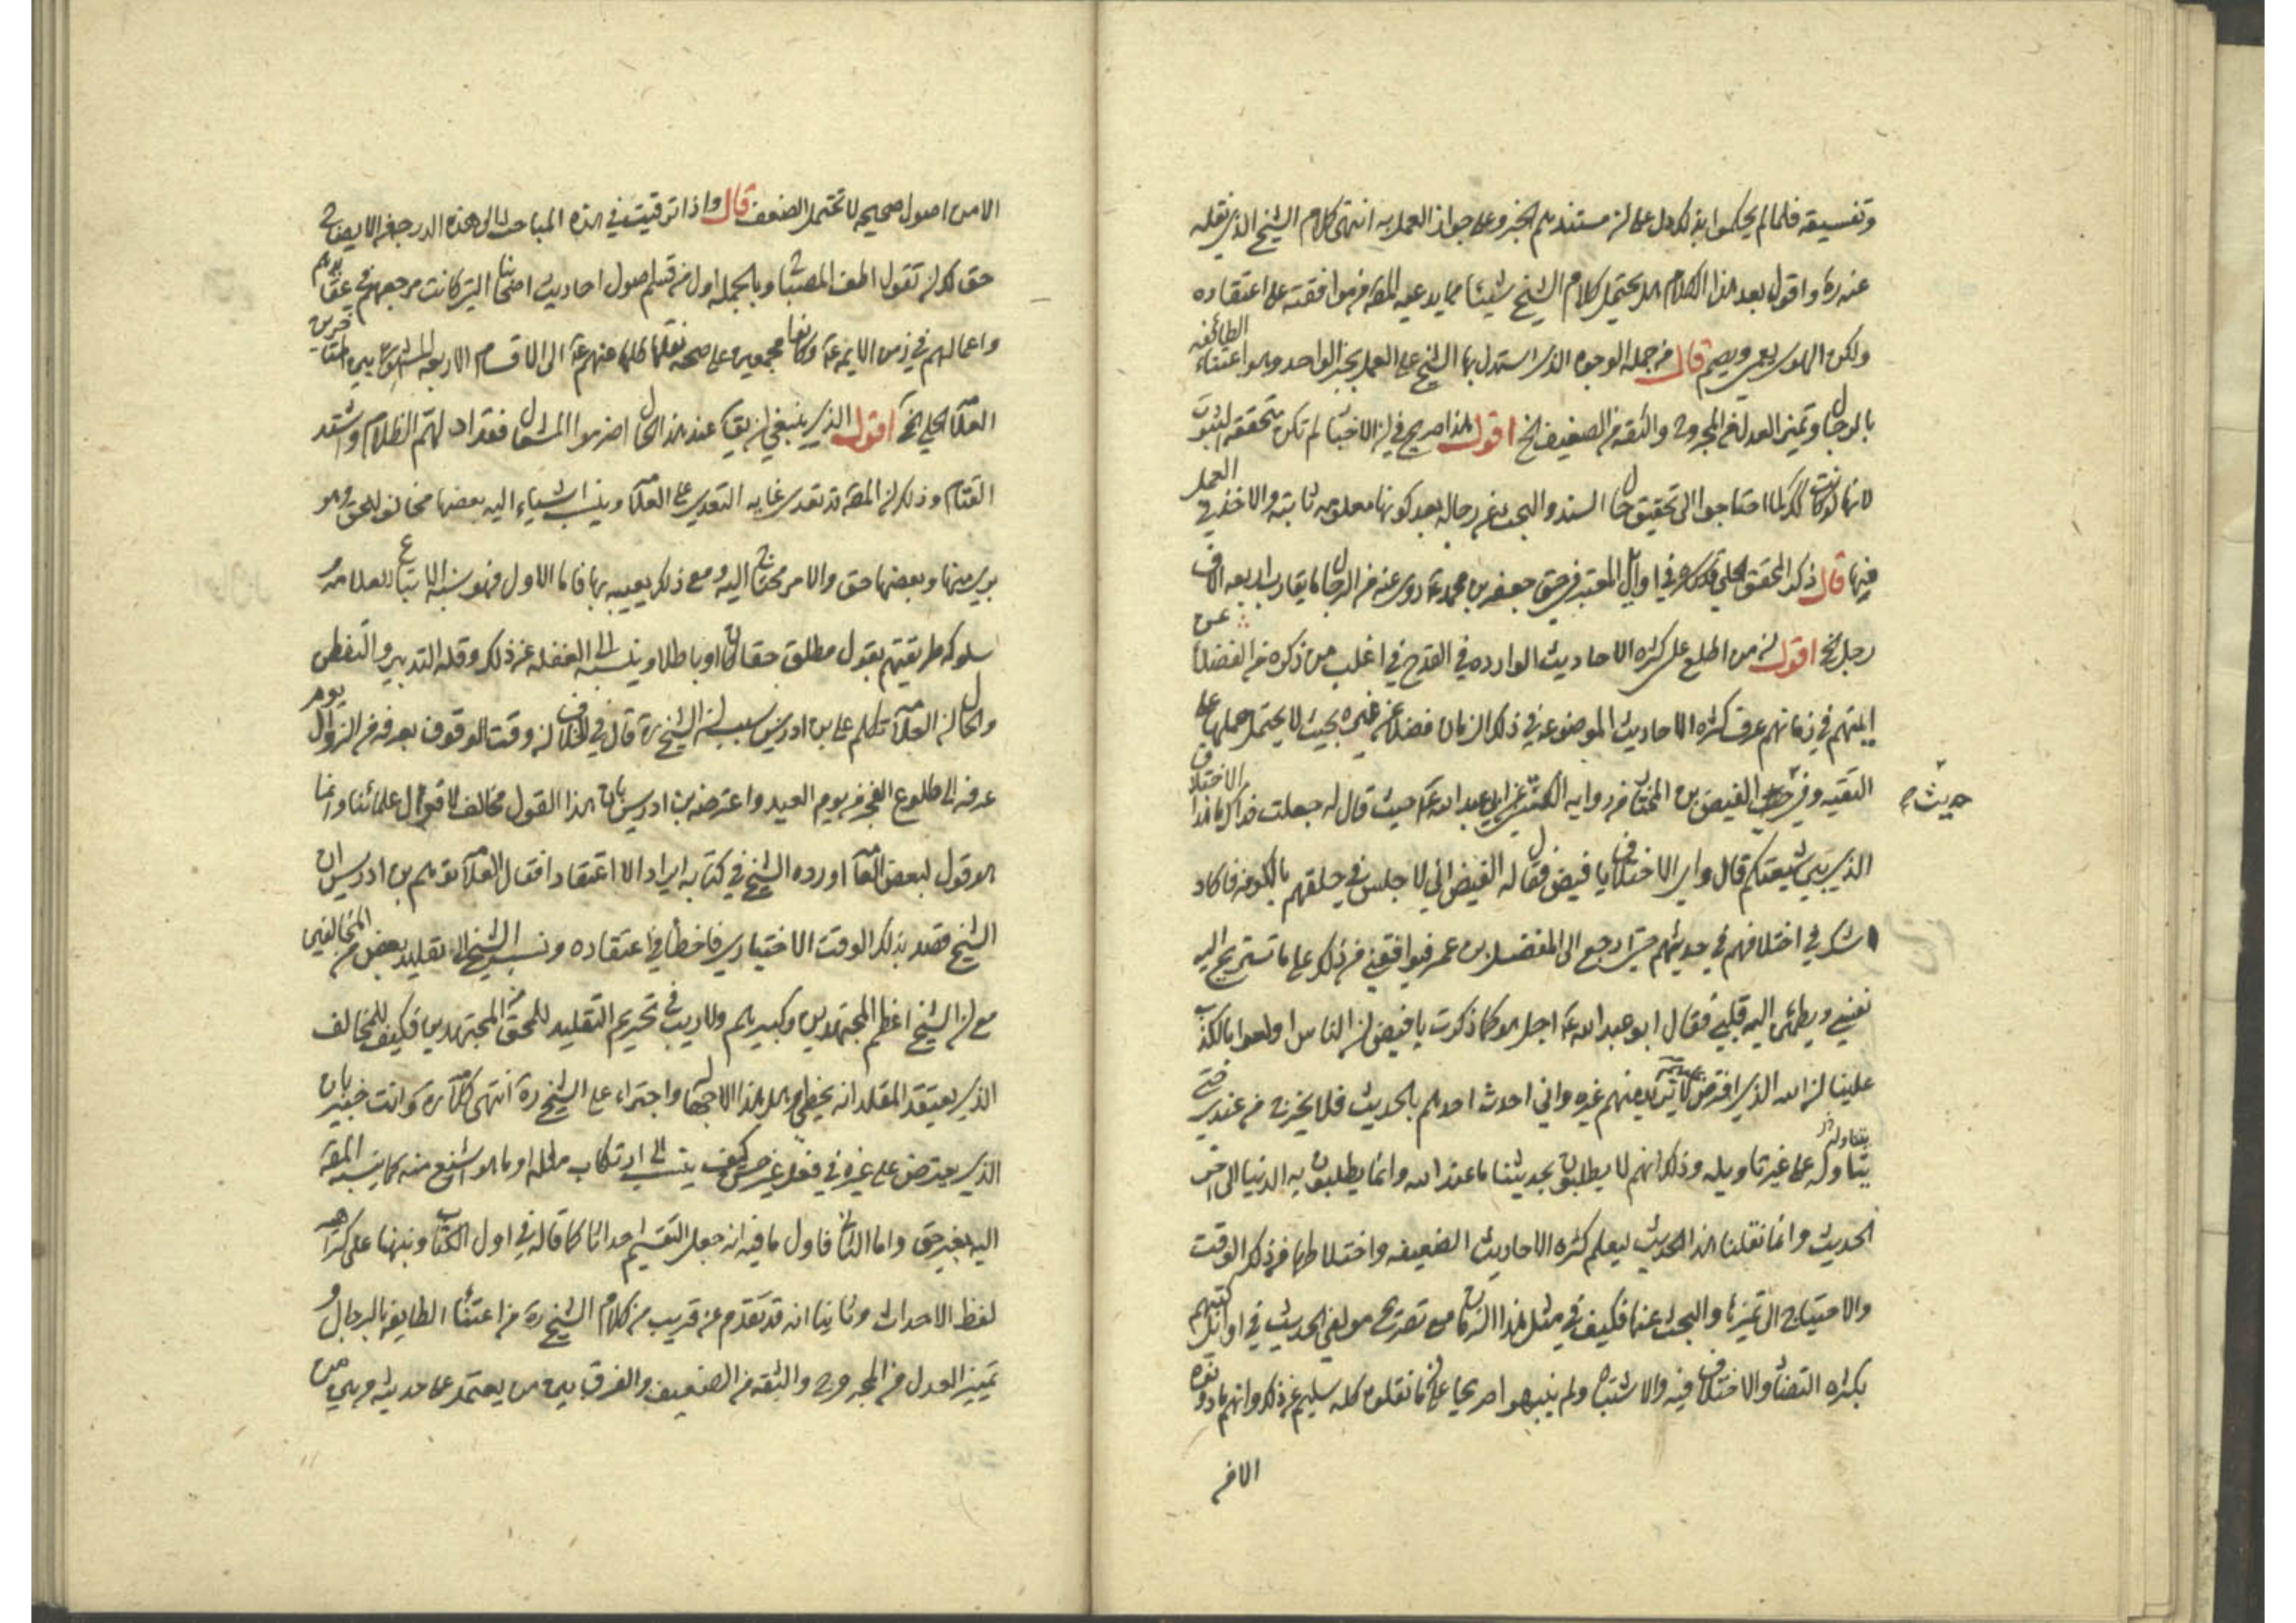 وتفسيقه فلما لم يحكموا بذلك دل على ان مستندهم الخبر وعلى جواز العمل به انتهى كلام الشيخ الذي نقله
عنه ره واقول بعد هذا الكلام هل يحتمل كلام الشيخ شيئا مما يدعيه المص من موافقته على اعتقاده
ولكن الهوى يعمي ويصم قال من جمله الوجوه الذي استدل بها الشيخ على العمل بخبر الواحد وهو اعتناء الطائفه
بالرجال وتميز العدل من المجروح والثقه من الضعيف الخ اقول هذا صريح في ان الاخبار لم تكن متحققه الثبوت
لانها لو كانت كذلك لما احتاجوا الى تحقيق حال السند والبحث عن رجاله بعد كونها معلومه ثابته والاخذ في العمل
فيها قال ذكر المحقق الحلي قدس سره في اوايل المعتبر في حق جعفر بن محمد ع روى عنه من الرجال ما يقارب اربعه الاف
رجل الخ اقول ان من اطلع على كثره الاحاديث الوارده في القدح في اغلب من ذكره من الفضلا عن
ايمتهم في زمانهم عرف كثره الاحاديث الموضوعه في ذلك الزمان فضلا عن غيره بحيث لا يحتمل حملها على
التقيه وفي حديث الفيض بن المختار في روايه الكشي عن ابي عبد الله ع حيث قال له جعلت فداك ما هذا الاختلاف
حديث
الذي بين شيعتكم قال واي الاختلاف يا فيض فقال له الفيض اني لاجلس في حلقهم بالكوفه فاكاد
اشك في اختلافهم في حديثهم حتى ارجع الى المفضل بن عمر فيوافقني من ذلك على ما تستريح اليه
نفسي ويطمئن اليه قلبي فقال ابو عبد الله ع اجل هو كما ذكرت يا فيض ان الناس اولعوا بالكذب
علينا ان الله الذي افترض عليهم لا يريد منهم غيره واني احدث احدهم بالحديث فلا يخرج من عندي حتى
يتاوله على غير تاويله وذلك انهم لا يطلبون بحديثنا ما عند الله وانما يطلبون به الدنيا الى اخر
الحديث وانما نقلنا هذا الحديث ليعلم كثره الاحاديث الضعيفه واختلاطها في ذلك الوقت
والاحتياج الى تميزها والبحث عنها فكيف في مثل هذا الزمان مع تصريح مولفي الحديث في اوايل كتبهم
بكثره التضاد والاختلاف فيه والاشتباه ولم ينبهوا صريحا على ان ما نقلوه كله سليم عن ذلك وانهم ما دونوه
الا من
الا من اصول صحيحه لا تحتمل الضعف قال واذا ترقيت في هذه المباحث الى هذه الدرجه من الايضاح
حق لك ان تقول اطف المصباح وبالجمله اول من قسم اصول احاديث اصحابنا التي كانت مرجعهم في عقايدهم
واعمالهم في زمن الايمه ع وكانوا مجمعين على صحه نقلها كلها عنهم ع الى الاقسام الاربعه المشهوره بين المتاخرين
العلامه الحلي الخ اقول الذي ينبغي ان يقال عند هذا الحال اضرموا المشعال فقد ادلهم الظلام واشتد
القتام وذلك ان المص قد تعدى غايه التعدي على العلامه وينسب اشياء اليه بعضها مخالف للحق وهو
بريء منها وبعضها حق والامر محتاج اليه ومع ذلك يعيبه بها فاما الاول فهو نسبه الاتباع للعامه و
سلوكه طريقتهم بقول مطلق حقا كان او باطلا وينسبه الى الغفله عن ذلك وقله التدبير والتفطن
والحال ان العلامه تكلم على بن ادريس بسبب ان الشيخ ره قال في الخلاف ان وقت الوقوف بعرفه من الزوال يوم
عرفه الى طلوع الفجر من يوم العيد واعترضه بن ادريس بان هذا القول مخالف لاقوال علمائنا وانما
هو قول لبعض العامه اورده الشيخ في كتابه ايرادا لا اعتقادا فقال العلامه توهم بن ادريس ان
الشيخ قصد بذلك الوقت الاختياري فاخطا في اعتقاده ونسب الشيخ الى تقليد بعض المخالفين
مع ان الشيخ اعظم المجتهدين وكبيرهم ولا ريب في تحريم التقليد للمحق من المجتهدين فكيف للمخالف
الذي يعتقد المقلد انه يخطي وهل هذا الا جهل واجتراء على الشيخ ره انتهى كلامه ره وانت خبير بان
الذي يعترض على غيره في فعل غير حسن كيف ينسب الى ارتكاب مثله او ما هو اشنع منه كما ينسبه المص
اليه بغير حق واما الثاني فاول ما فيه انه جعل التقسيم احداثا كما قاله في اول الكتاب ونبهنا على كراهه
لفظ الاحداث وثانيا انه قد تقدم عن قريب من كلام الشيخ ره من اعتناء الطايفه بالرجال و
تمييز العدل من المجروح والثقه من الضعيف والفرق بين من يعتمد على حديثه وبين من